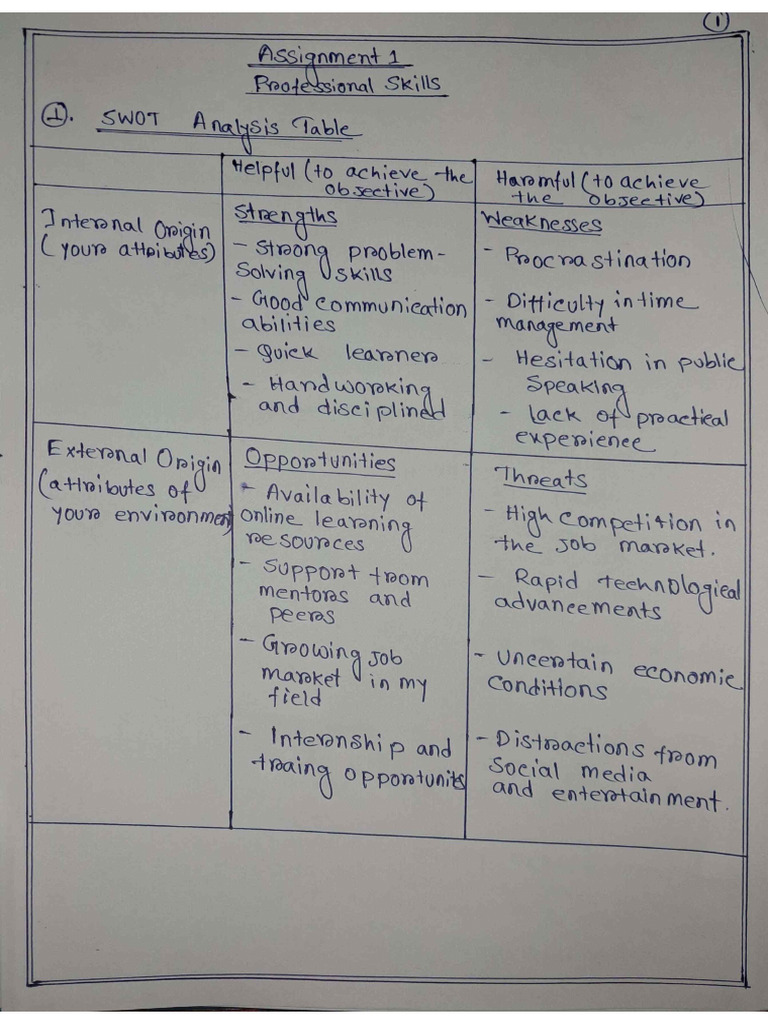 ①
Assignment 1
Professional Skills
①. SWOT Analysis Table
Helpful (to achieve the
objective)
Harmful (to achieve
the objective)
Internal Origin
(your attributes)
Strengths
- Strong problem-
solving skills
- Good communication
abilities
- Quick learner
- Hardworking
and disciplined
Weaknesses
- Procrastination
- Difficulty in time
management
- Hesitation in public
speaking
- Lack of practical
experience
External Origin
(attributes of
your environment)
Opportunities
- Availability of
online learning
resources
- Support from
mentors and
peers
- Growing job
market in my
field
- Internship and
traing opportunits
Threats
- High competition in
the job market.
- Rapid technological
advancements
- Uncertain economic
conditions
- Distractions from
social media
and entertainment.